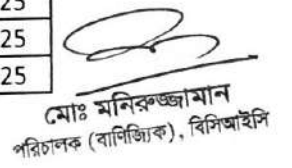 25
25
25
মোঃ মনিরুজ্জামান
পরিচালক (বাণিজ্যিক), বিসিআইসি